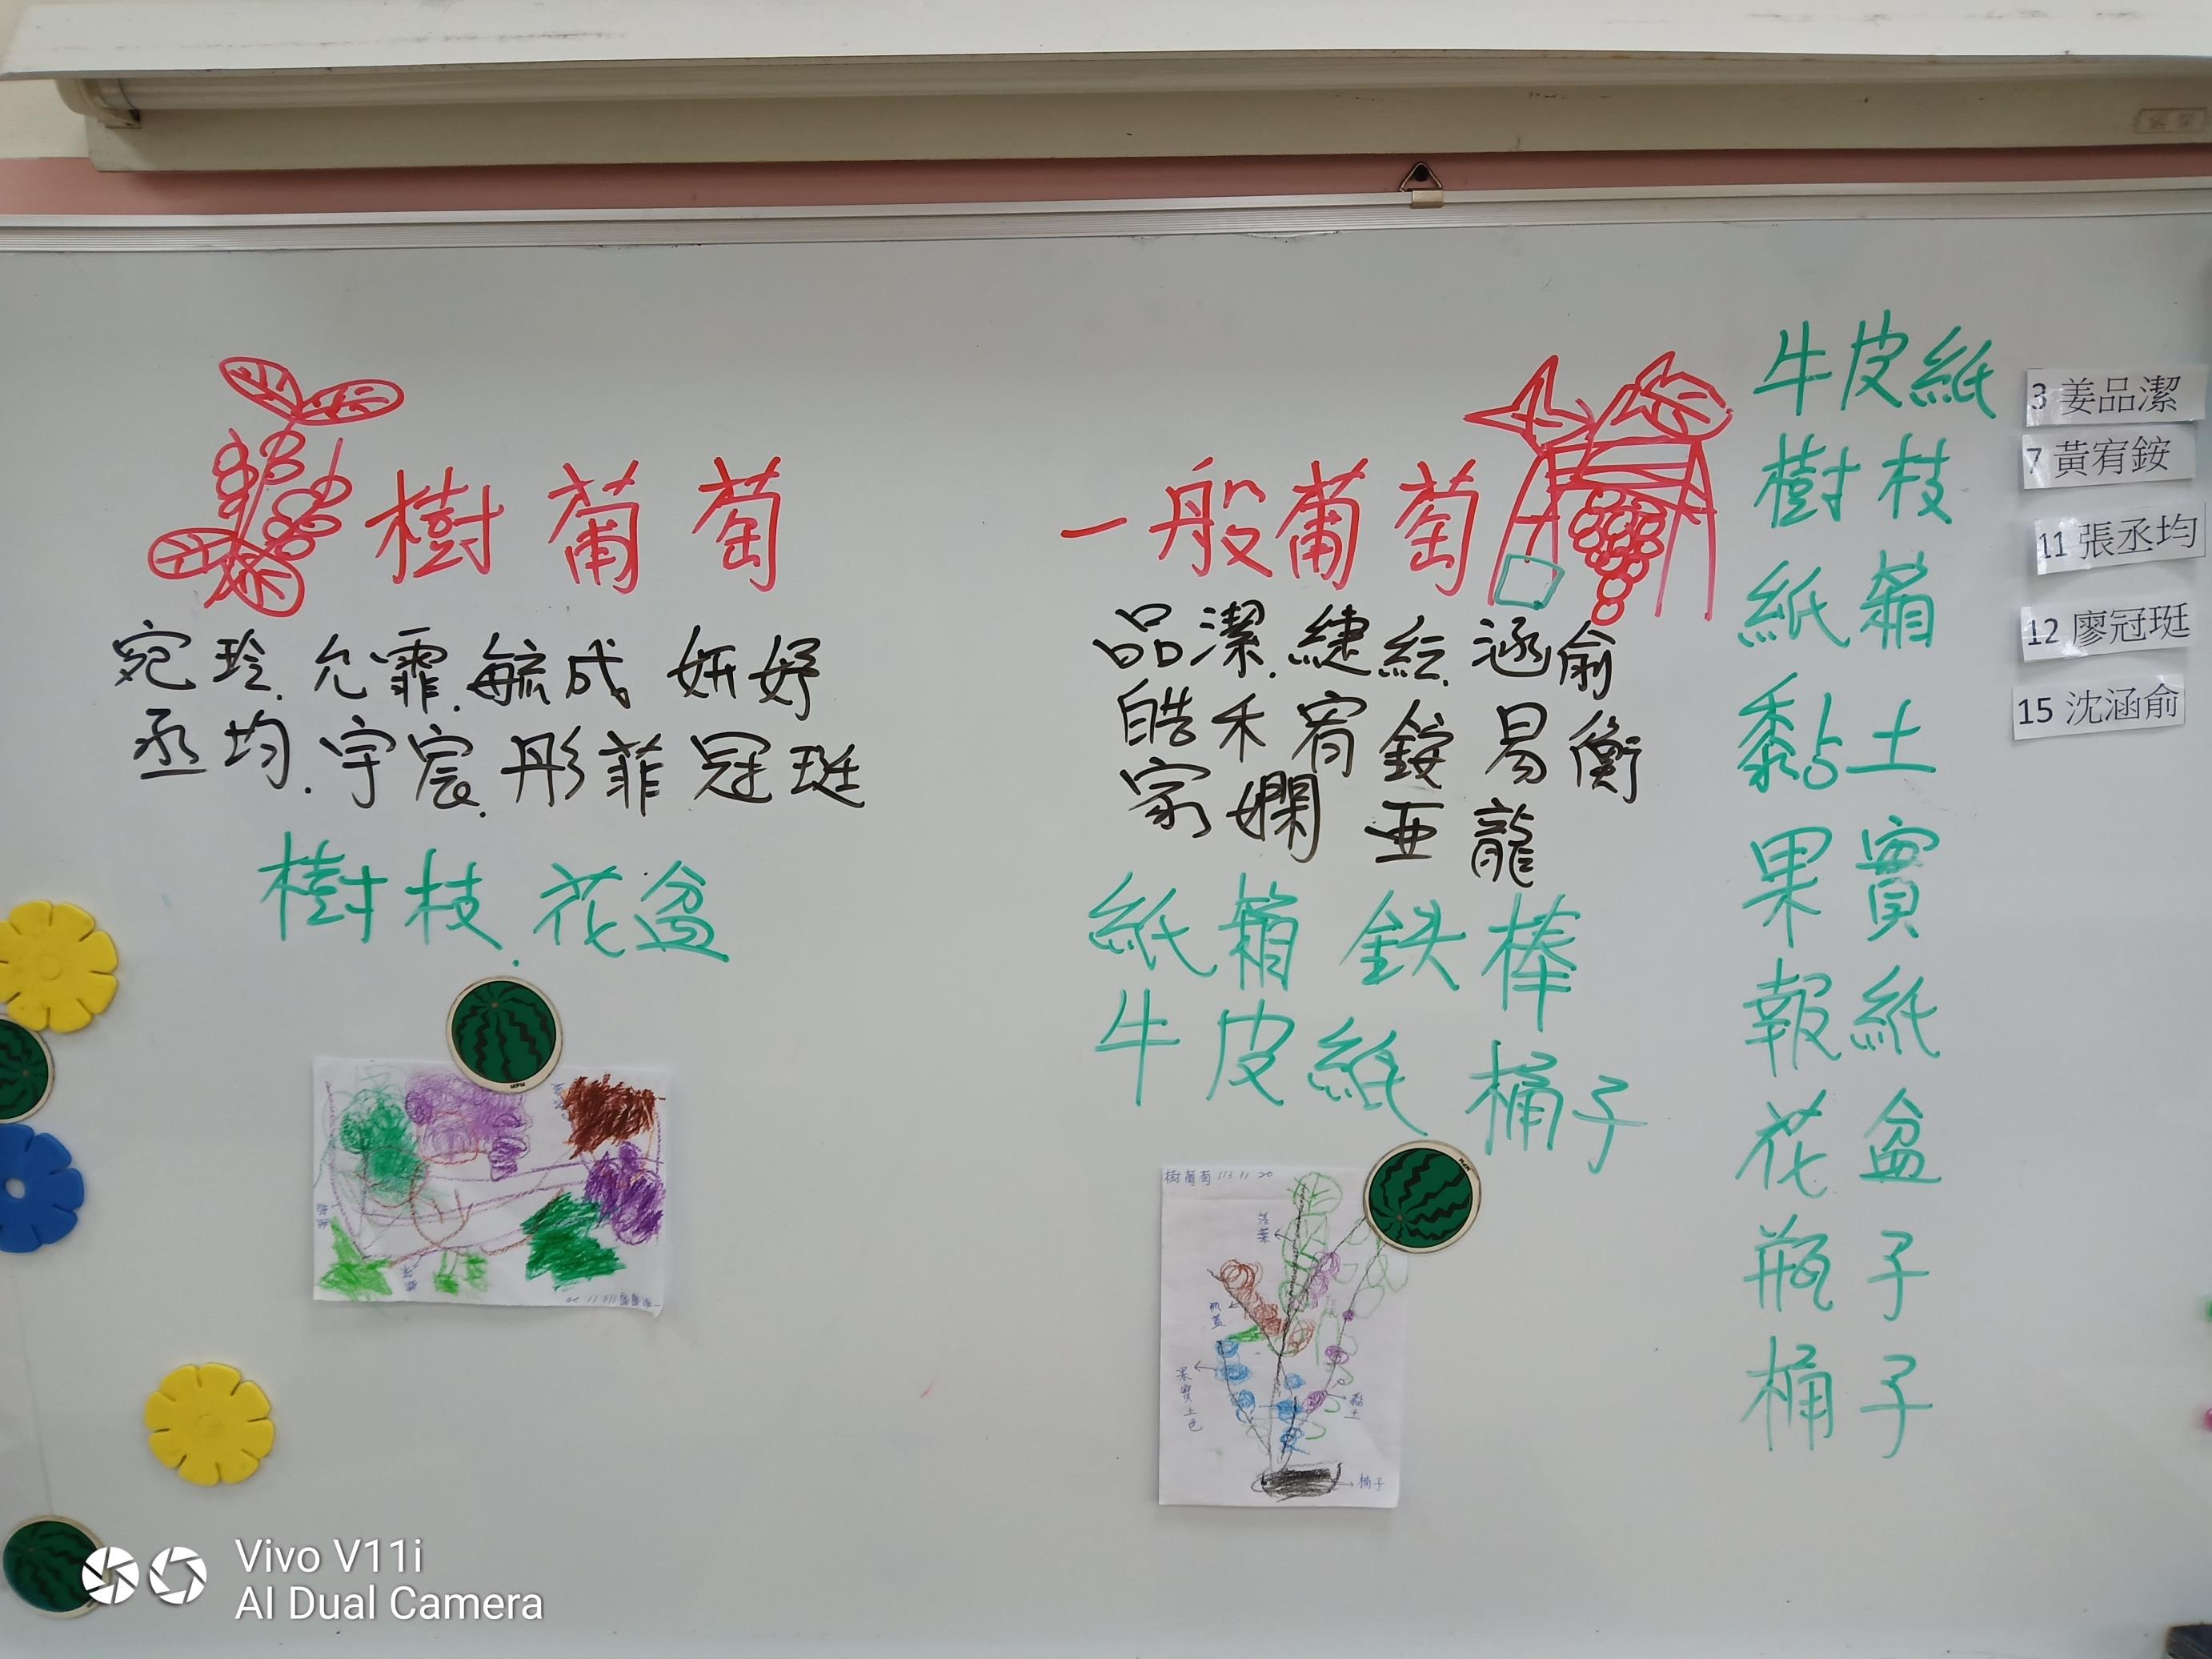 樹葡萄
宛玲.允霏.毓成.妍妤
丞均.宇宸.彤菲冠珽
樹枝.花盆
一般葡萄
品潔.緁紜.涵俞
皓禾宥銨易衡
家嫻亞龍
紙箱 鉄棒
牛皮紙 桶子
牛皮紙
樹枝
紙箱
黏土
果實
報紙
花盆
瓶子
桶子
3 姜品潔
7 黃宥銨
11 張丞均
12 廖冠珽
15 沈涵俞
樹葡萄 113 11 20
落葉
瓶蓋
果實上色
黏土
桶子
Vivo V11i
AI Dual Camera